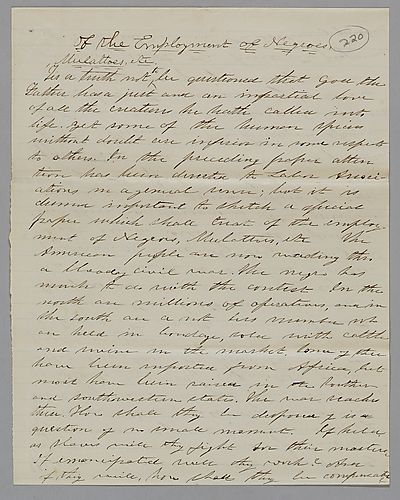 Of the Employment of Negroes,
220
Mulattoes, etc
Is a truth not be questioned that God the
Father has a just and an impartial love
of all the creation he hath called into
life. Yet some of the human species
without doubt are inferior in some respects
to others. In the preceding paper atten
tion has been directed to Labor Associ
ations in a general sense; but it is
deemed important to sketch a special
paper which shall treat of the employ-
ment of Negroes, Mulattoes, etc The
American people are now wading thro
a bloody civil war. The negro has
much to do with the contest. In the
north are millions of operatives, and in
the south are a not less number who
are held in bondage, sold with cattle
and swine in the market. Some of them
have been imported from Africa, but
most have been raised in the Southern
and southwestern states. The war reaches
them. How shall they be disposed of is a
question of no small moment. If held
as slaves will they fight for their masters
if emancipated will they work?
if they will, how shall they be compensated